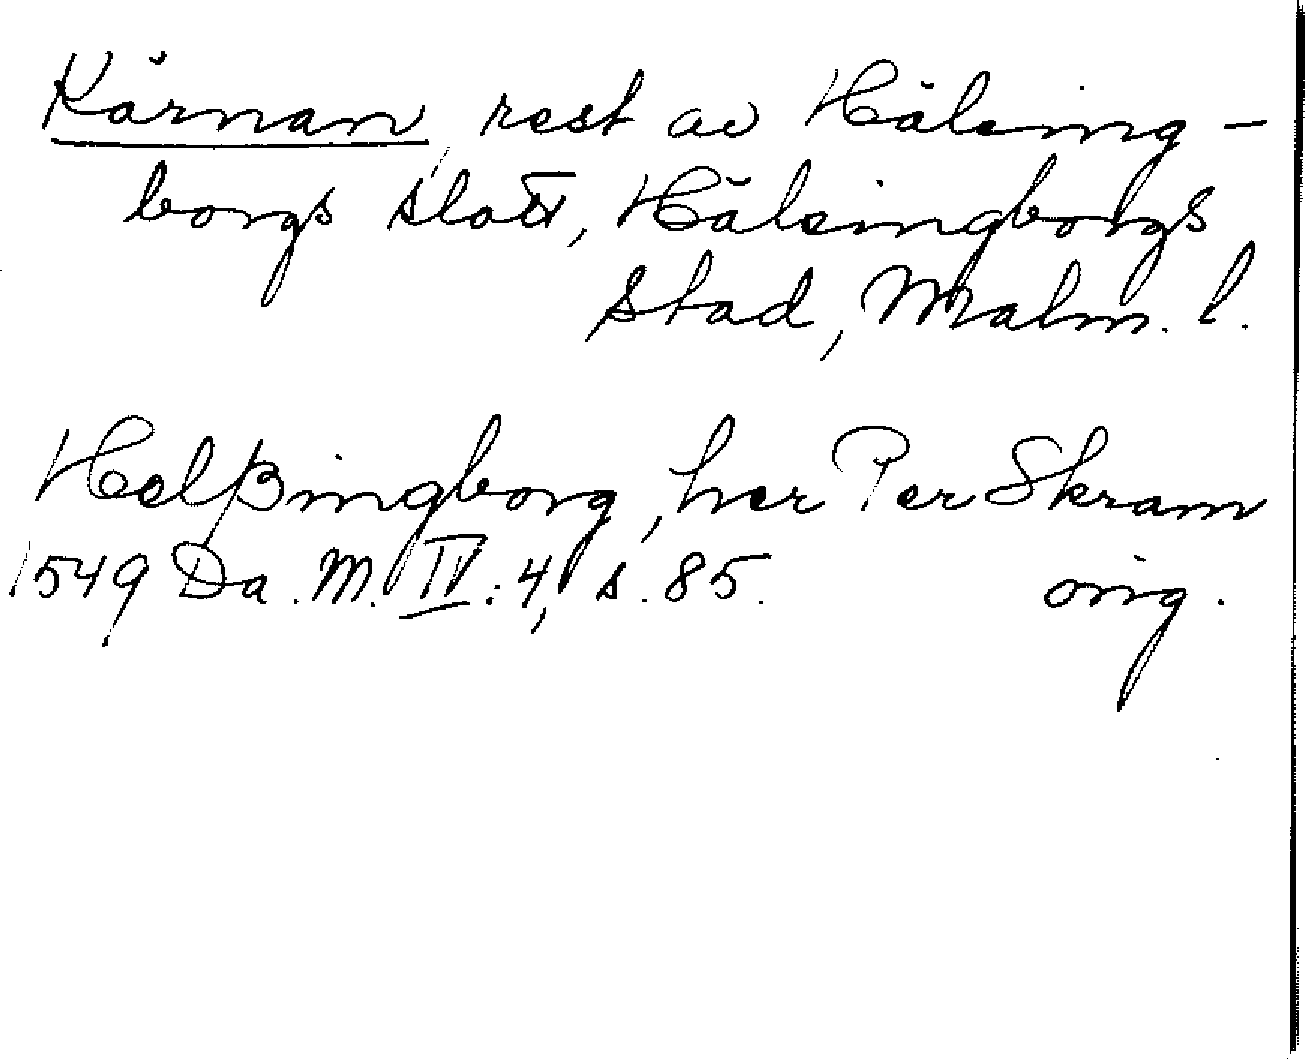 Kärnan, rest av Hälsing-
borgs slott, Hälsingborgs
stad, Malm. l.
Helßingborg, her Per Skram
1549 Da. M. IV: 4, s. 85. orig.